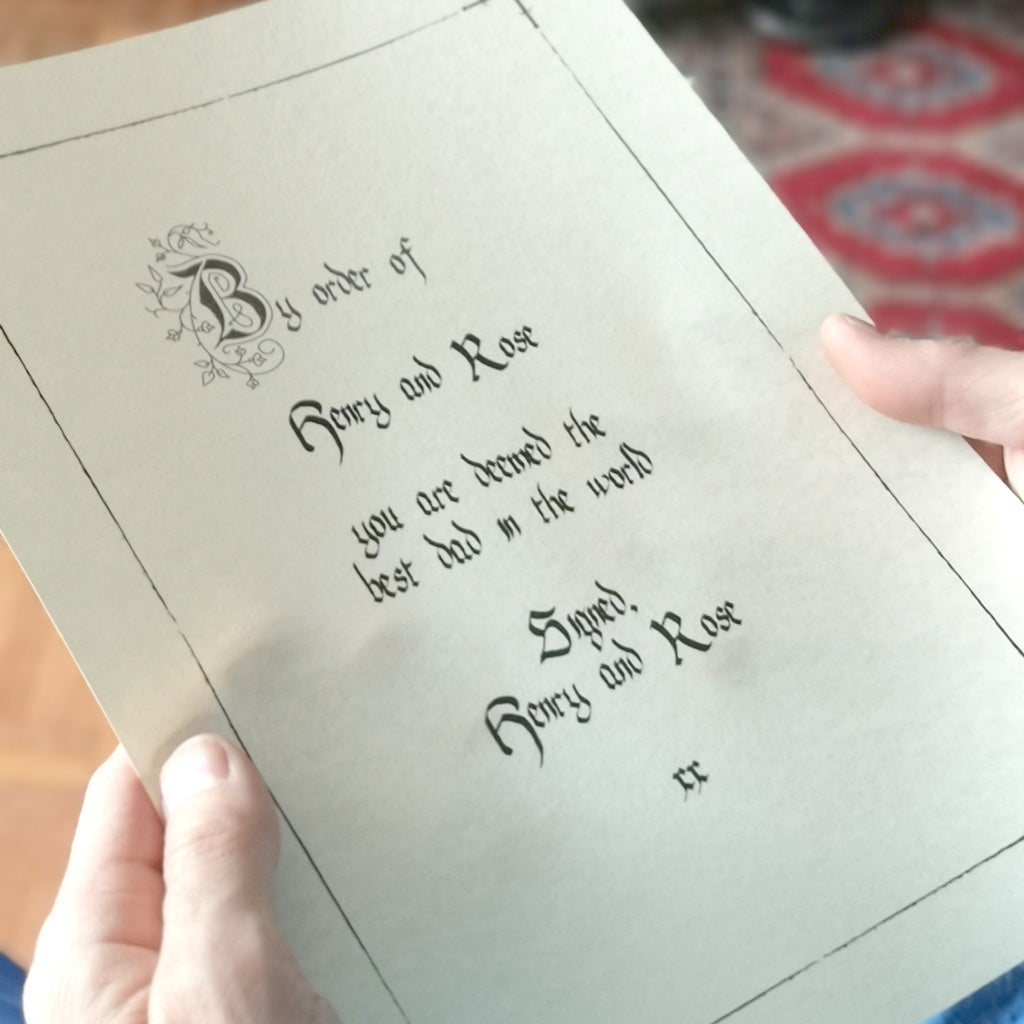 By order of
Henry and Rose
you are deemed the
best dad in the world
Signed,
Henry and Rose
xx